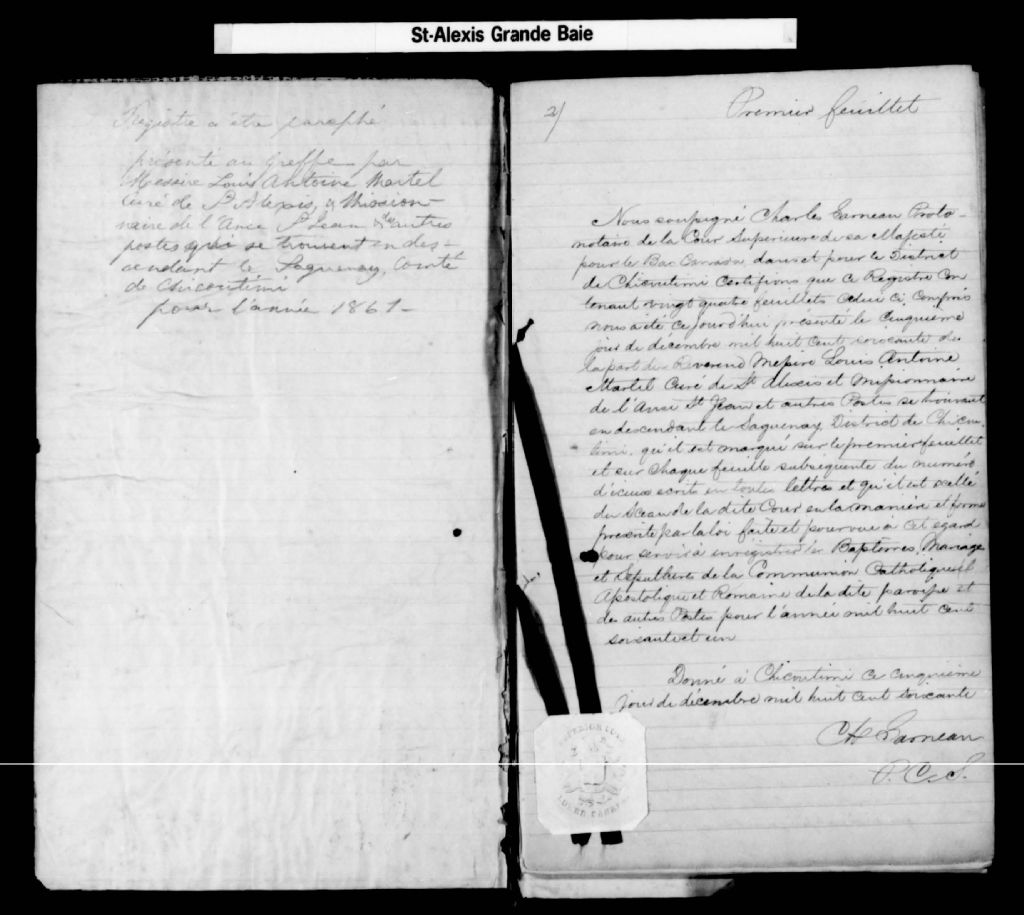 St-Alexis Grande Baie
Registre a été paraphé
présenté au greffe par
Messire Louis Antoine Martel
curé de St Alexis, & Mission-
naire de l'Anse St Jean & autres
postes qui se trouvent en des-
cendant le Saguenay, Comté
de Chicoutimi
pour l'année 1861-
2/
Premier feuillet
Nous soussigné Charles Garneau Proto-
notaire de la Cour Superieure de sa Majesté
pour le Bas Canada, dans et pour le District
de Chicoutimi Certifions que ce Registre Con
tenant vingt quatre feuillets celui ci compris
nous a été ce jourd'hui présenté le cinquieme
jour de décembre mil huit cent soixante de
la part du Reverend Messire Louis Antoine
Martel Curé de St Alexis et missionnaire
de l'Anse St Jean et autres Postes se trouvant
en descendant le Saguenay District de Chicou
timi. qu'il est marqué sur le premier feuillet
et sur chaque feuille subsequente du numéro
d'iceux écrits en toutes lettres et qu'il est scellé
du Sceau de la dite Cour en la manière et forme
prescrite par la loi faite et pourvue à cet égard
pour servir à enregistrer les Baptemes, Mariage
et Sepultures de la Communion Catholique
Apostolique et Romaine de la dite paroisse et
des autres Postes pour l'année mil huit cent
soixante et un
Donné à Chicoutimi ce cinquieme
jour de décembre mil huit cent soixante
Ch Garneau
P. C. S.
SUPERIOR COURT
LOWER CANADA